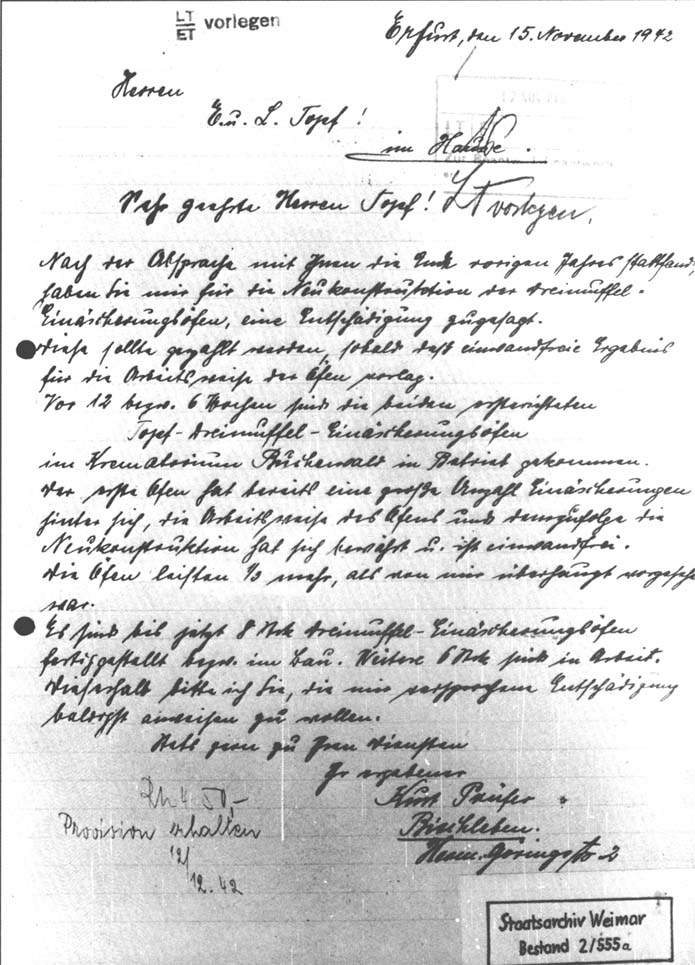 LT
ET vorlegen
Erfurt, den 15. November 1942
Herren
E. u. L. Topf!
im Hause.
Sehr geehrte Herren Topf! LT vorlegen.
Nach der Absprache mit Ihnen die Ende vorigen Jahres stattfand,
haben Sie mir für die Neukonstruktion der Dreimuffel-
Einäscherungsöfen, eine Entschädigung zugesagt.
Diese sollte gezahlt werden, sobald das einwandfreie Ergebnis
für die Arbeitsweise der Öfen vorlag.
Vor 12 bezw. 6 Wochen sind die beiden ersterichteten
Topf-Dreimuffel-Einäscherungsöfen
im Krematorium Buchenwald in Betrieb gekommen.
Der erste Ofen hat bereits eine große Anzahl Einäscherungen
hinter sich, die Arbeitsweise des Ofens und demzufolge die
Neukonstruktion hat sich bewährt u. ist einwandfrei.
Die Öfen leisten 1/3 mehr, als von mir überhaupt vorgesehen
war.
Es sind bis jetzt 8 Stck Dreimuffel-Einäscherungsöfen
fertiggestellt bezw. im Bau. Weitere 6 Stck sind in Arbeit.
Dieserhalb bitte ich Sie, die mir versprochene Entschädigung
baldigst anweisen zu wollen.
Stets gern zu Ihren Diensten
Ihr ergebener
Kurt Prüfer
Bischleben.
Herm. Göringstr. 2
450,-
Provision erhalten
12/
12.42
Staatsarchiv Weimar
Bestand 2/555a